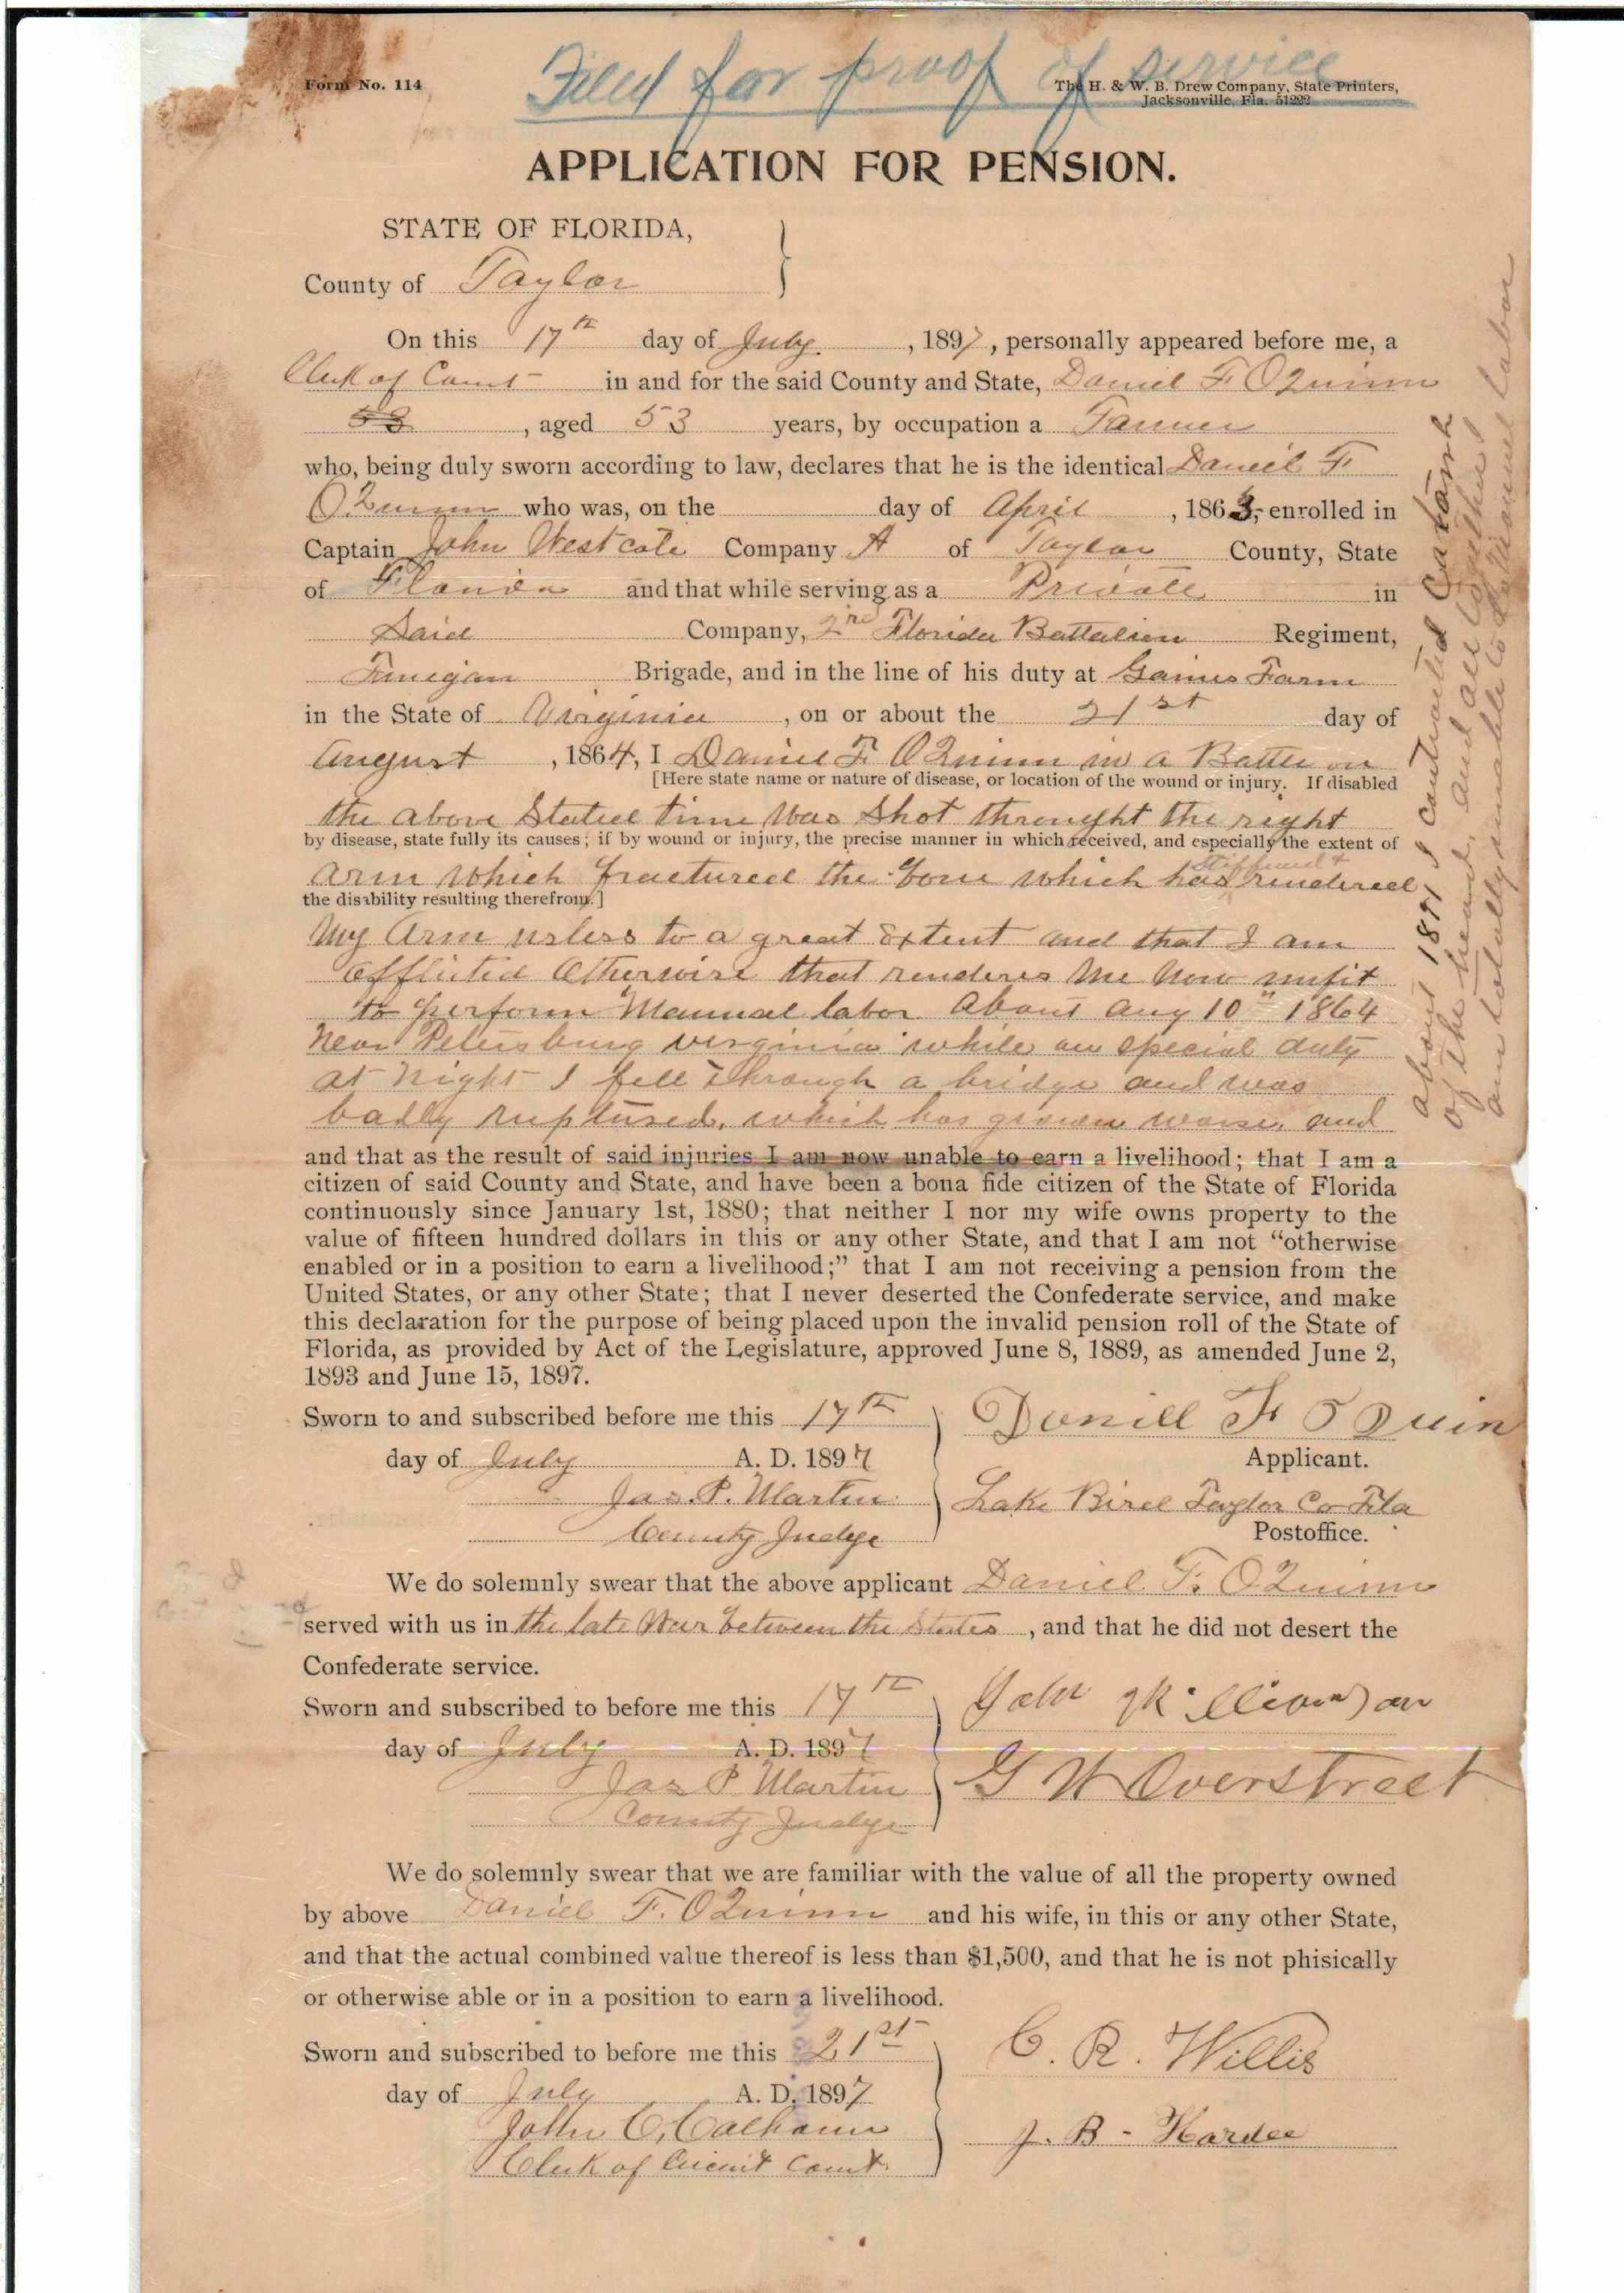 Filed for proof of service
Form No. 114
The H. & W. B. Drew Company, State Printers,
Jacksonville, Fla. 51222
APPLICATION FOR PENSION.
STATE OF FLORIDA,
County of Taylor
On this 17th day of July, 1897, personally appeared before me, a
Clerk of Court in and for the said County and State, Daniel F. OQuinn
53, aged 53 years, by occupation a Farmer
who, being duly sworn according to law, declares that he is the identical Daniel F
O.Quinn who was, on the day of April, 1863, enrolled in
Captain John Westcote Company A of Taylor County, State
of Florida and that while serving as a Private in
Said Company, 2nd Florida Battalion Regiment,
Finigan Brigade, and in the line of his duty at Gains Farm
in the State of Virginia, on or about the 21st day of
August, 1864, I Daniel F. OQuinn in a Battle on
[Here state name or nature of disease, or location of the wound or injury. If disabled
the above Stated time was Shot throught the right
by disease, state fully its causes; if by wound or injury, the precise manner in which received, and especially the extent of
arm which fractured the bone which has stiffened & rendered
the disability resulting therefrom.]
My Arm usless to a great Extent and that I am
afflicted Otherwise that renders me now unfit
to perform Manual labor About Aug 10" 1864
Near Petersburg virginia while on special duty
at night I fell through a bridge and was
badly ruptured, which has grown worse, and
about 1871 I contracted
of the head, and all together I
am totally unable to do Manuel labor
and that as the result of said injuries I am now unable to earn a livelihood; that I am a
citizen of said County and State, and have been a bona fide citizen of the State of Florida
continuously since January 1st, 1880; that neither I nor my wife owns property to the
value of fifteen hundred dollars in this or any other State, and that I am not “otherwise
enabled or in a position to earn a livelihood;” that I am not receiving a pension from the
United States, or any other State; that I never deserted the Confederate service, and make
this declaration for the purpose of being placed upon the invalid pension roll of the State of
Florida, as provided by Act of the Legislature, approved June 8, 1889, as amended June 2,
1893 and June 15, 1897.
Sworn to and subscribed before me this 17th
day of July A. D. 1897
Jas. P. Martin
County Judge
Daniell F OQuin
Applicant.
Lake Bird Taylor Co Fla
Postoffice.
We do solemnly swear that the above applicant Daniel F. OQuinn
served with us in the late War between the States, and that he did not desert the
Confederate service.
Sworn and subscribed to before me this 17th
day of July A. D. 1897
Jas P Martin
County Judge
John
G W Overstreet
We do solemnly swear that we are familiar with the value of all the property owned
by above Daniel F. OQuinn and his wife, in this or any other State,
and that the actual combined value thereof is less than $1,500, and that he is not phisically
or otherwise able or in a position to earn a livelihood.
Sworn and subscribed to before me this 21st
day of July A. D. 1897
John C. Calhoun
Clerk of Circuit Court
C. R. Willis
J. B - Hardee